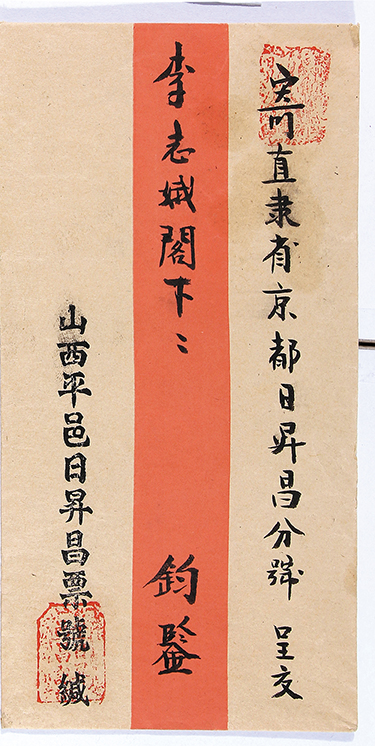 寄直隶省京都日昇昌分號 呈交
李志娥閣下: 鈞鑒
山西平邑日昇昌票號緘